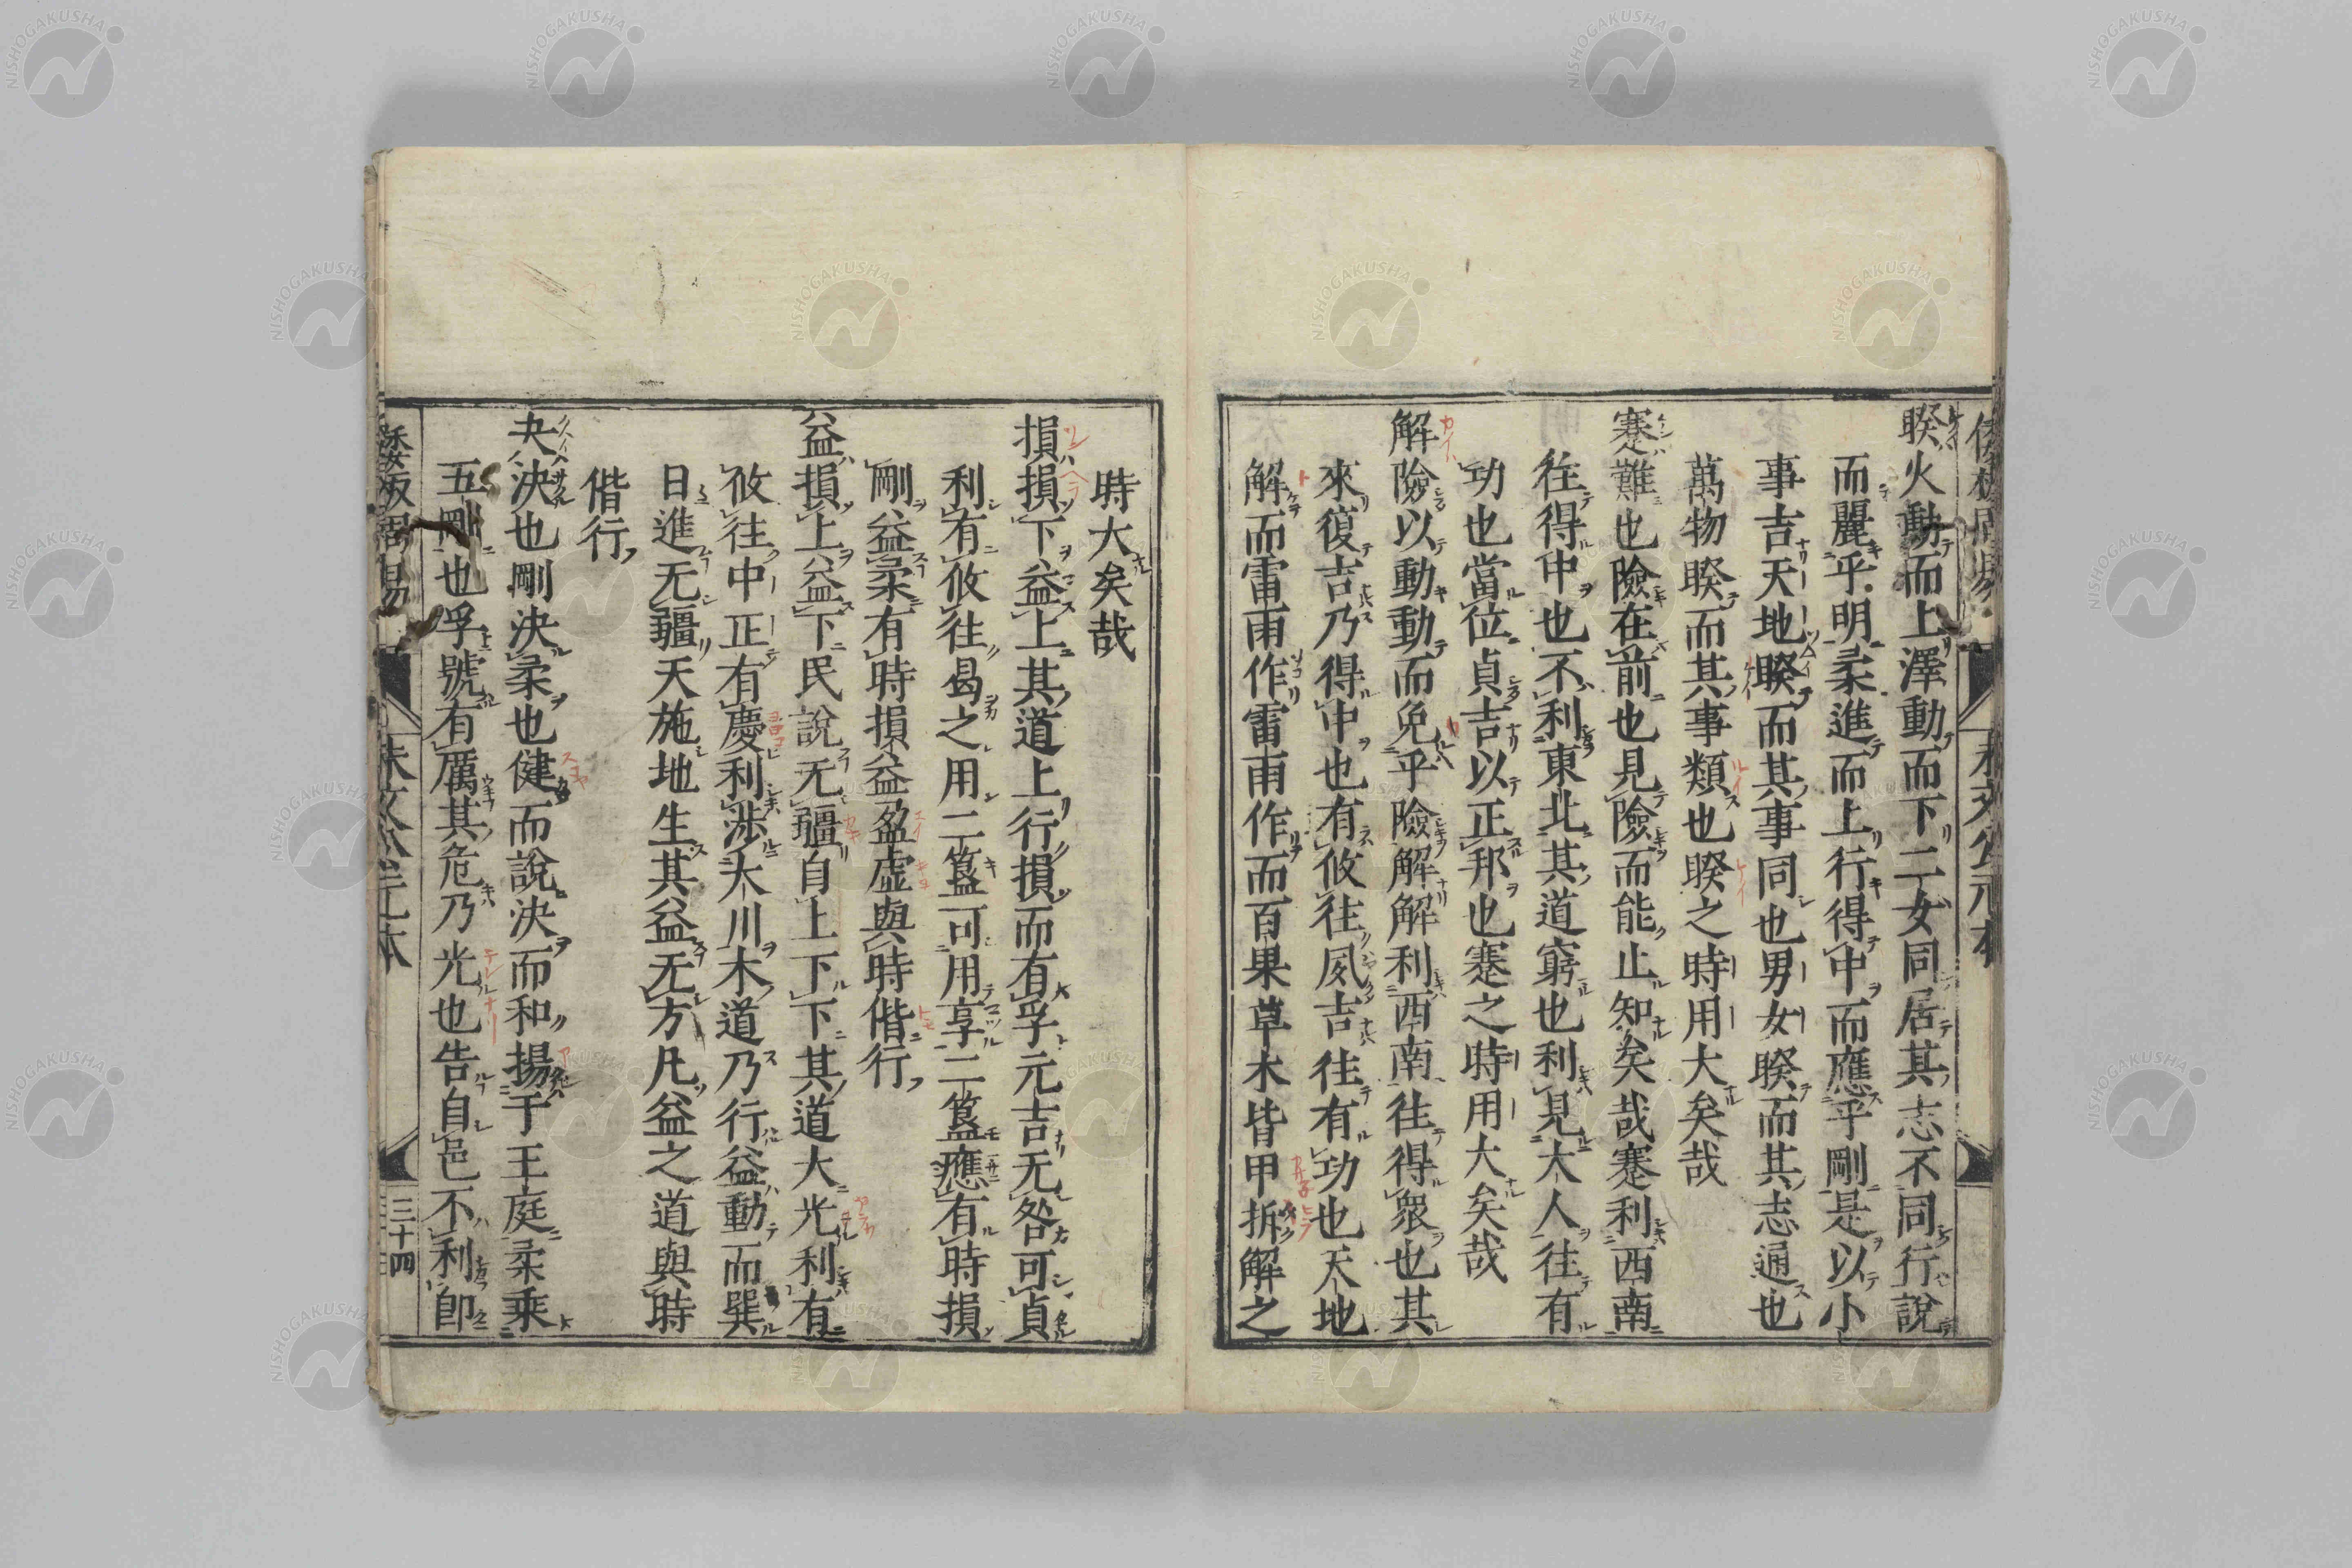 睽火動而上澤動而下二女同居其志不同行說
而麗乎明柔進而上行得中而應乎剛是以小
事吉天地睽而其事同也男女睽而其志通也
萬物睽而其事類也睽之時用大矣哉
蹇難也險在前也見險而能止知矣哉蹇利西南
往得中也不利東北其道窮也利見大人往有
功也當位貞吉以正邦也蹇之時用大矣哉
解險以動動而免乎險解解利西南往得衆也其
來復吉乃得中也有攸往夙吉往有功也天地
解而雷雨作雷雨作而百果草木皆甲拆解之
時大矣哉
損損下益上其道上行損而有孚元吉无咎可貞
利有攸往曷之用二簋可用享二簋應有時損
剛益柔有時損益盈虛與時偕行
益損上益下民說无疆自上下下其道大光利有
攸往中正有慶利涉大川木道乃行益動而巽
日進无疆天施地生其益无方凡益之道與時
偕行
夬決也剛決柔也健而說決而和揚于王庭柔乘
五剛也孚號有厲其危乃光也告自邑不利卽
周易 三十四